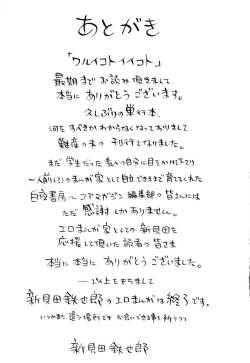 あとがき
「ワルイコトイイコト」
最期までお読み頂きまして
本当にありがとうございます。
久しぶりの単行本、
何をすべきかわからなくなっておりまして
難産の末の刊行となりました。
まだ学生だった素人の自分に目をかけて下さり
一人前(?)のまんが家として自立できるまで育ててくれた
白夜書房〜コアマガジン編集部の皆さんには
ただ感謝しかありません。
エロまんが家としての新貝田を
応援して頂いた読者の皆さま
本当に本当にありがとうございました。
―以上をもちまして
新貝田鉄也郎のエロまんがは終了です。
いつかまた違う場所でもお会いできる事を祈りつつ
新貝田鉄也郎